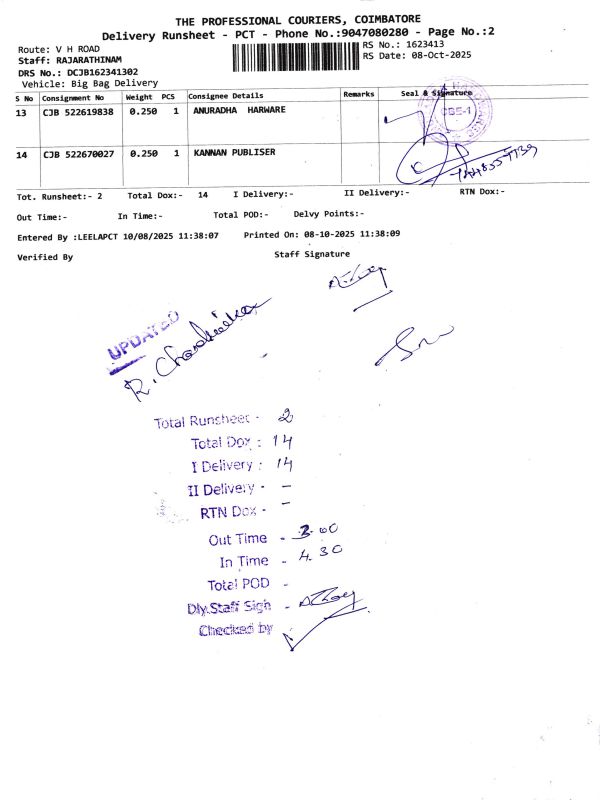 THE PROFESSIONAL COURIERS, COIMBATORE
Delivery Runsheet - PCT - Phone No.:9047080280 - Page No.:2
Route: V H ROAD
RS No.: 1623413
Staff: RAJARATHINAM
RS Date: 08-Oct-2025
DRS No.: DCJB162341302
Vehicle: Big Bag Delivery
S No Consignment No Weight PCS Consignee Details Remarks Seal & Signature
13 CJB 522619838 0.250 1 ANURADHA HARWARE
CBE-1
14 CJB 522670027 0.250 1 KANNAN PUBLISER
Tot. Runsheet:- 2 Total Dox:- 14 I Delivery:- II Delivery:- RTN Dox:-
Out Time:- In Time:- Total POD:- Delvy Points:-
Entered By :LEELAPCT 10/08/2025 11:38:07 Printed On: 08-10-2025 11:38:09
Verified By Staff Signature
UPDATED
Total Runsheet - 2
Total Dox : 14
I Delivery : 14
II Delivery - -
RTN Dox - -
Out Time - 3.00
In Time - 4.30
Total POD -
Dly.Staff Sigh -
Checked by